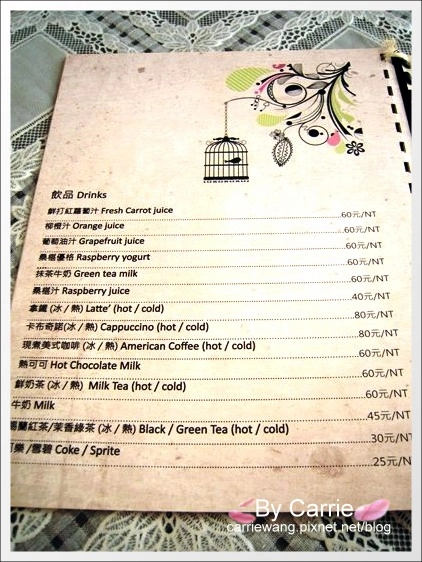 飲品 Drinks
鮮打紅蘿蔔汁 Fresh Carrot juice 60元/NT
柳橙汁 Orange juice 60元/NT
葡萄油汁 Grapefruit juice 60元/NT
桑椹優格 Raspberry yogurt 60元/NT
抹茶牛奶 Green tea milk 60元/NT
桑椹汁 Raspberry juice 40元/NT
拿鐵 (冰 / 熱) Latte' (hot / cold) 80元/NT
卡布奇諾 (冰 / 熱) Cappuccino (hot / cold) 80元/NT
現煮美式咖啡 (冰 / 熱) American Coffee (hot / cold) 60元/NT
熱可可 Hot Chocolate Milk 60元/NT
鮮奶茶 (冰 / 熱) Milk Tea (hot / cold) 60元/NT
牛奶 Milk 45元/NT
蘭紅茶/茉香綠茶 (冰 / 熱) Black / Green Tea (hot / cold) 30元/NT
樂 /雪碧 Coke / Sprite 25元/NT
By Carrie
carriewang.pixnet.net/blog